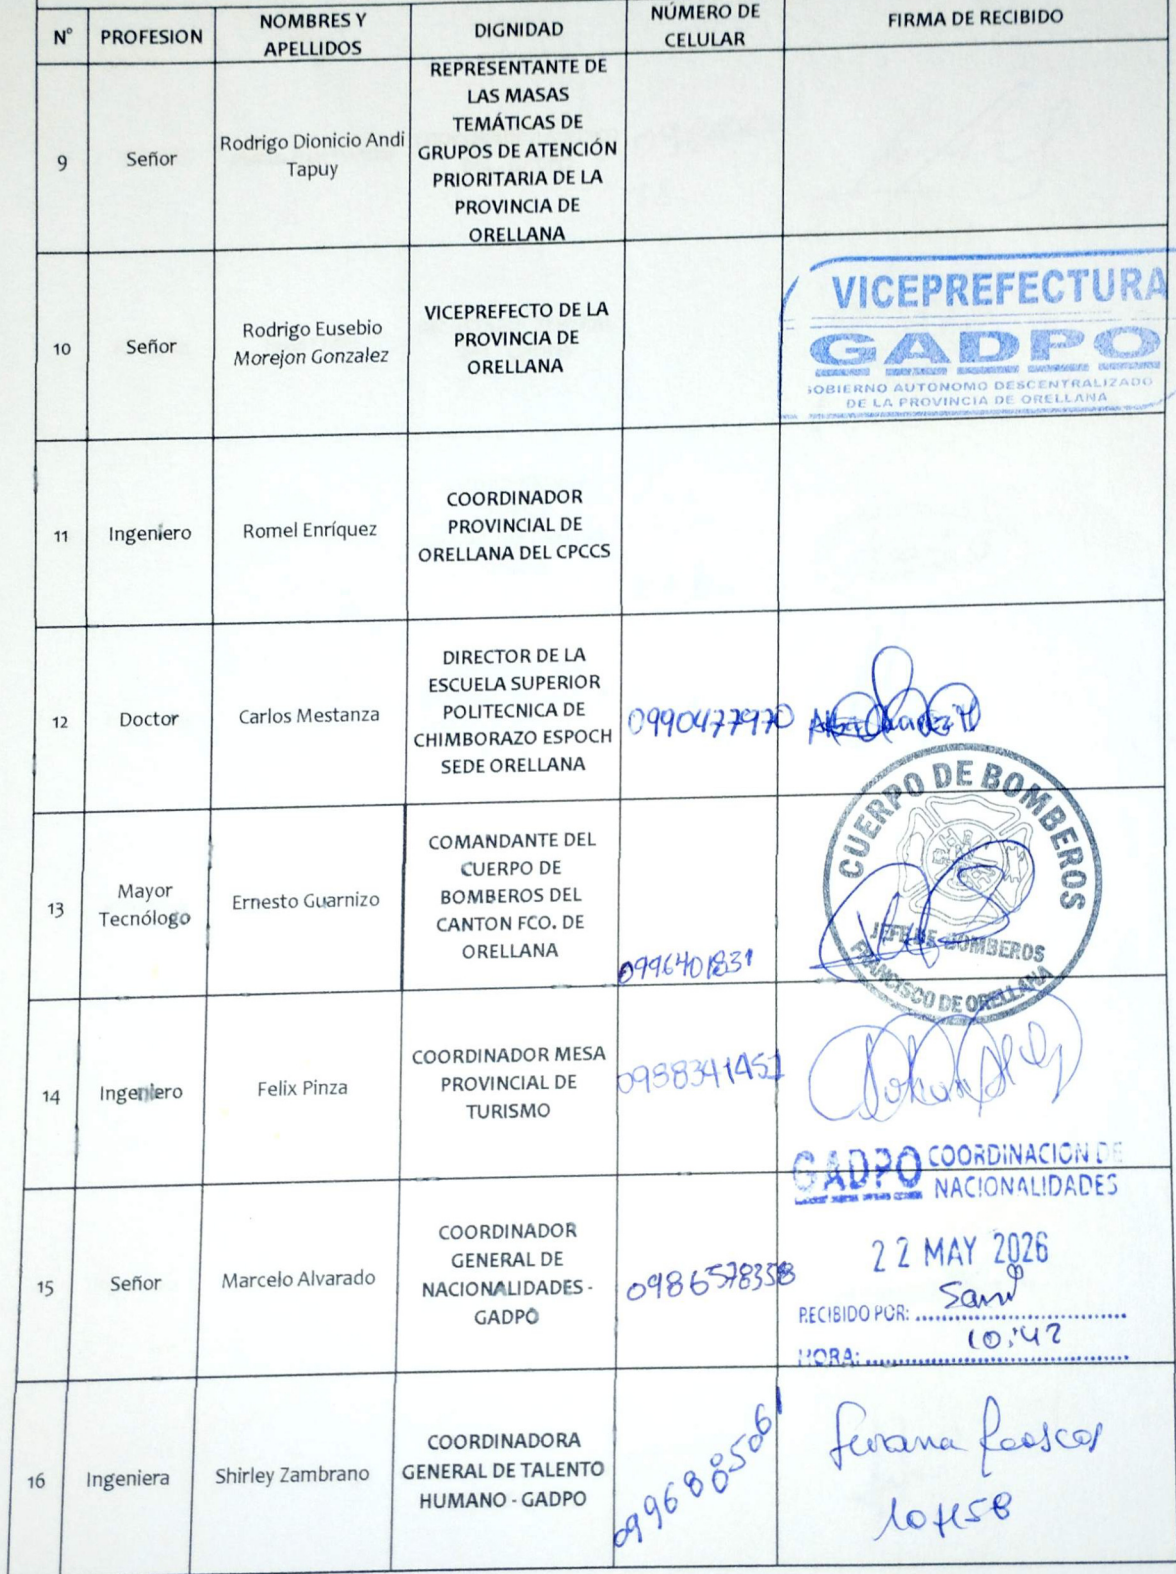 N° PROFESION NOMBRES Y APELLIDOS DIGNIDAD NÚMERO DE CELULAR FIRMA DE RECIBIDO
9 Señor Rodrigo Dionicio Andi Tapuy REPRESENTANTE DE LAS MASAS TEMÁTICAS DE GRUPOS DE ATENCIÓN PRIORITARIA DE LA PROVINCIA DE ORELLANA
10 Señor Rodrigo Eusebio Morejon Gonzalez VICEPREFECTO DE LA PROVINCIA DE ORELLANA
VICEPREFECTURA
GADPO
GOBIERNO AUTONOMO DESCENTRALIZADO
DE LA PROVINCIA DE ORELLANA
11 Ingeniero Romel Enríquez COORDINADOR PROVINCIAL DE ORELLANA DEL CPCCS
12 Doctor Carlos Mestanza DIRECTOR DE LA ESCUELA SUPERIOR POLITECNICA DE CHIMBORAZO ESPOCH SEDE ORELLANA 0990477970
13 Mayor Tecnólogo Ernesto Guarnizo COMANDANTE DEL CUERPO DE BOMBEROS DEL CANTON FCO. DE ORELLANA 0996401831
CUERPO DE BOMBEROS
JEFE DE BOMBEROS
FRANCISCO DE ORELLANA
14 Ingeniero Felix Pinza COORDINADOR MESA PROVINCIAL DE TURISMO 0988341451
GADPO COORDINACION DE
NACIONALIDADES
15 Señor Marcelo Alvarado COORDINADOR GENERAL DE NACIONALIDADES - GADPO 0986578358
22 MAY 2026
RECIBIDO POR: Sami
HORA: 10:42
16 Ingeniera Shirley Zambrano COORDINADORA GENERAL DE TALENTO HUMANO - GADPO 0996805061
10H58